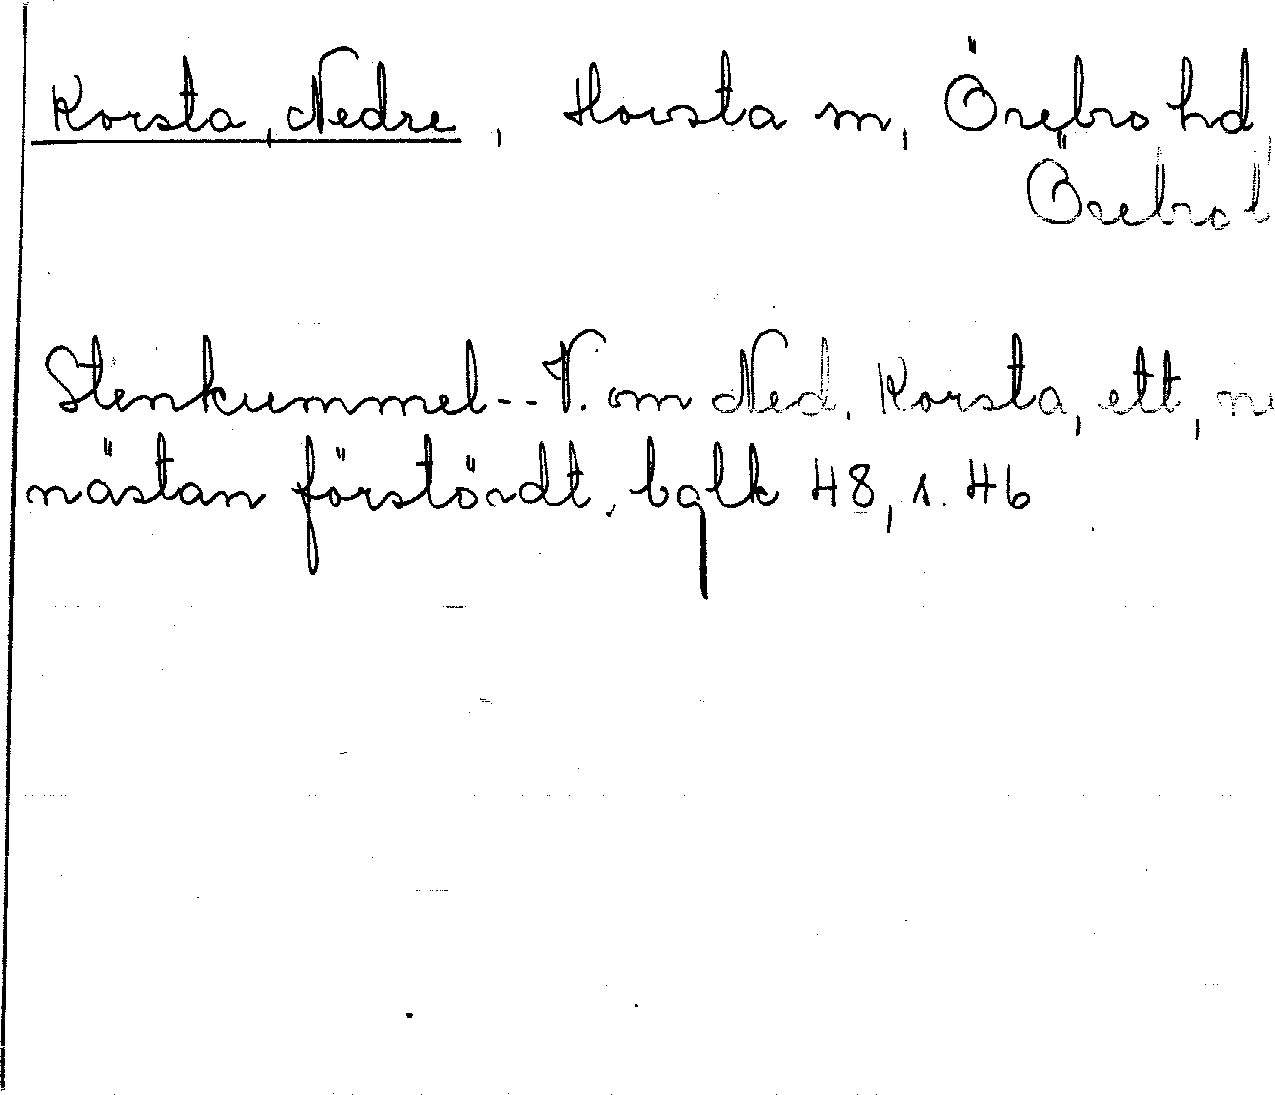 Korsta, Nedre, Hovsta sn, Örebro hd,
Örebro l
Stenkummel -- V. om Ned. Korsta, ett, nu
nästan förstördt, bglk 48, s. 46